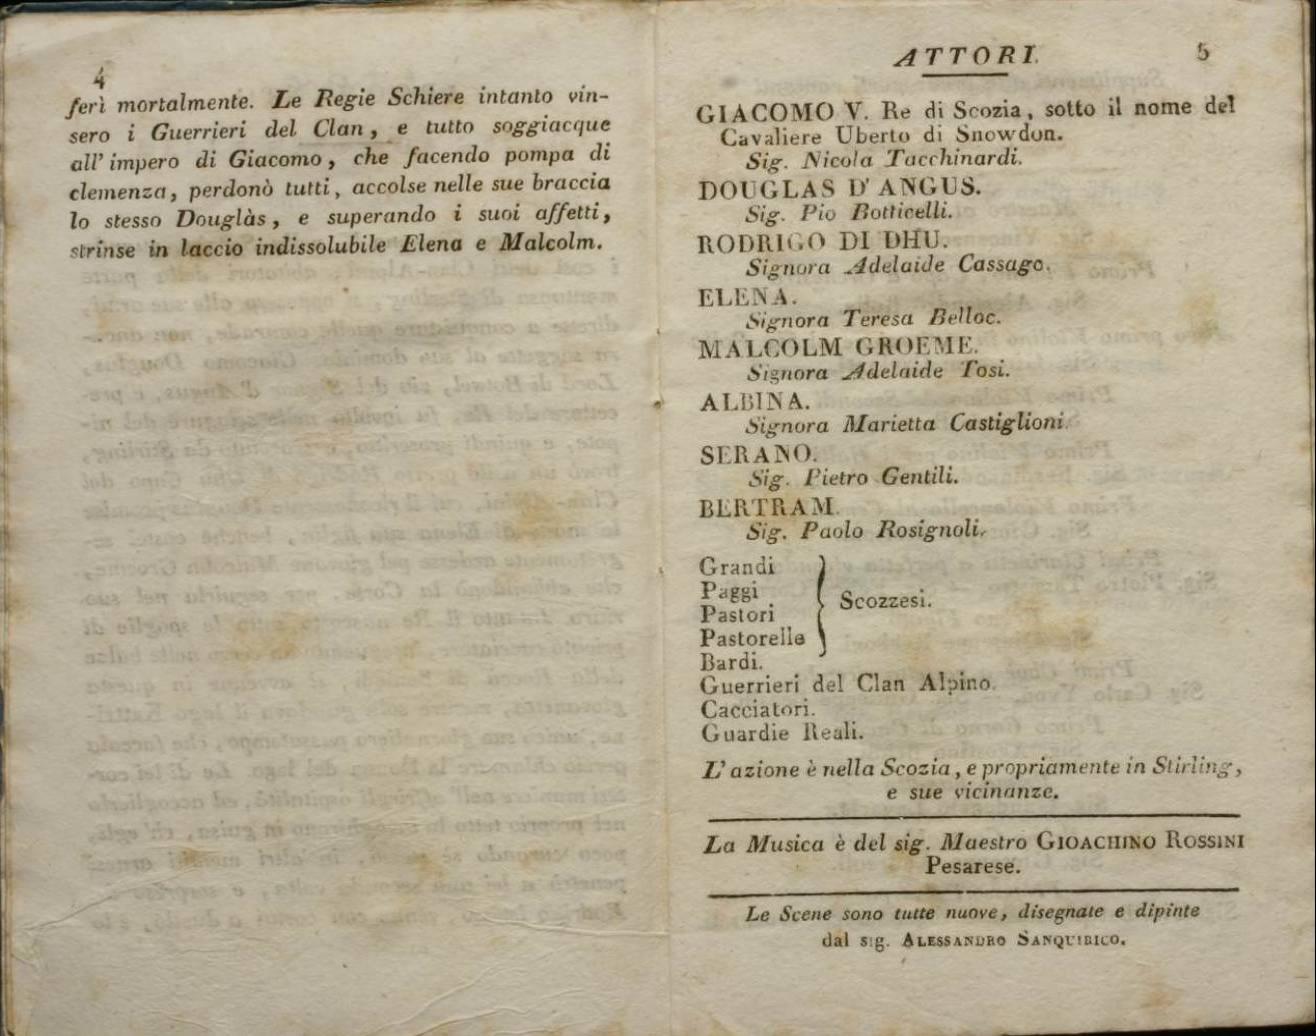 4
ferì mortalmente. Le Regie Schiere intanto vin-
sero i Guerrieri del Clan, e tutto soggiacque
all' impero di Giacomo, che facendo pompa di
clemenza, perdonò tutti, accolse nelle sue braccia
lo stesso Douglàs, e superando i suoi affetti,
strinse in laccio indissolubile Elena e Malcolm.
ATTORI. 5
GIACOMO V. Re di Scozia, sotto il nome del
Cavaliere Uberto di Snowdon.
Sig. Nicola Tacchinardi.
DOUGLAS D' ANGUS.
Sig. Pio Botticelli.
RODRIGO DI DHU.
Signora Adelaide Cassago.
ELENA.
Signora Teresa Belloc.
MALCOLM GROEME.
Signora Adelaide Tosi.
ALBINA.
Signora Marietta Castiglioni.
SERANO.
Sig. Pietro Gentili.
BERTRAM.
Sig. Paolo Rosignoli.
Grandi
Paggi
Pastori
Pastorelle
Scozzesi.
Bardi.
Guerrieri del Clan Alpino.
Cacciatori.
Guardie Reali.
L' azione è nella Scozia, e propriamente in Stirling,
e sue vicinanze.
La Musica è del sig. Maestro GIOACHINO ROSSINI
Pesarese.
Le Scene sono tutte nuove, disegnate e dipinte
dal sig. ALESSANDRO SANQUIRICO.